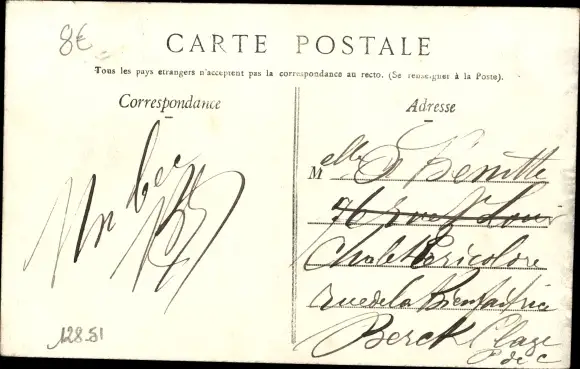 8€
CARTE POSTALE
Tous les pays etrangers n'acceptent pas la correspondance au recto. (Se renseigner à la Poste).
Correspondance
Adresse
Un bec
Melle D
rue St Louis
Chalet Tricolore
rue de la Bienfaitrice
Berck Plage
P de C
128.51